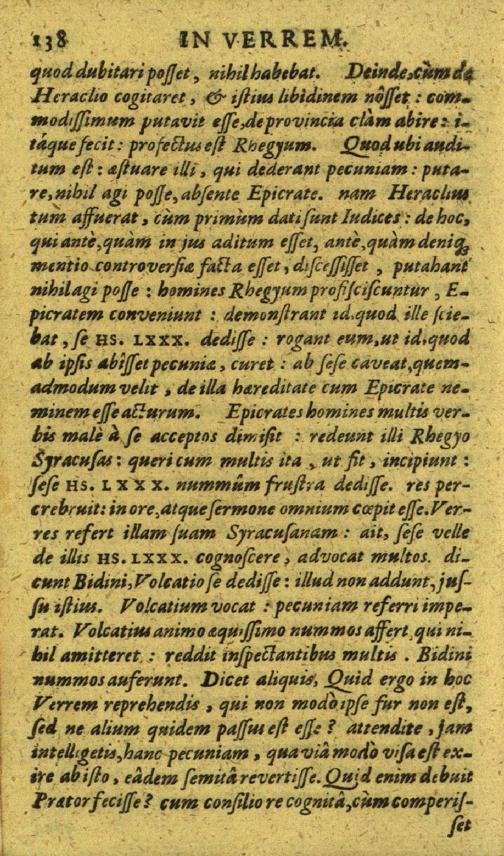 138 IN VERREM.
quod dubitari posset, nihil habebat. Deinde, cùm de
Heraclio cogitaret, & istius libidinem nôsset: com-
modissimum putavit esse, de provincia clàm abire: i-
táque fecit: profectus est Rhegyum. Quod ubi audi-
tum est: æstuare illi, qui dederant pecuniam: puta-
re, nihil agi posse, absente Epicrate. nam Heraclius
tum affuerat, cùm primùm dati sunt Iudices: de hoc,
qui antè, quàm in jus aditum esset, antè, quàm deniq;
mentio controversiæ facta esset, discessisset, putabant
nihil agi posse: homines Rhegyum profisciscuntur, E-
picratem conveniunt: demonstrant id, quod ille scie-
bat, se HS. LXXX. dedisse: rogant eum, ut id, quod
ab ipsis abîsset pecuniæ, curet: ab sese caveat, quem-
admodum velit, de illa hæreditate cum Epicrate ne-
minem esse acturum. Epicrates homines multis ver-
bis malè à se acceptos dimisit: redeunt illi Rhegyo
Syracusas: queri cum multis ita, ut fit, incipiunt:
sese HS. LXXX. nummûm frustra dedisse. res per-
crebruit: in ore, atque sermone omnium cœpit esse. Ver-
res refert illam suam Syracusanam: ait, sese velle
de illis HS. LXXX. cognoscere, advocat multos. di-
cunt Bidini, Volcatio se dedisse: illud non addunt, jus-
su istius. Volcatium vocat: pecuniam referri impe-
rat. Volcatius animo æquissimo nummos affert, qui ni-
hil amitteret: reddit inspectantibus multis. Bidini
nummos auferunt. Dicet aliquis, Quid ergo in hoc
Verrem reprehendis, qui non modo ipse fur non est,
sed ne alium quidem passus est esse? attendite, jam
intelligetis, hanc pecuniam, qua viâ modo visa est ex-
ire ab isto, eâdem semitâ revertisse. Quid enim debuit
Prætor fecisse? cum consilio re cognitâ, cùm comperis-
set